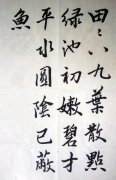 田田八九葉散點
綠池初嫩碧才
平水圓陰已蔽
魚